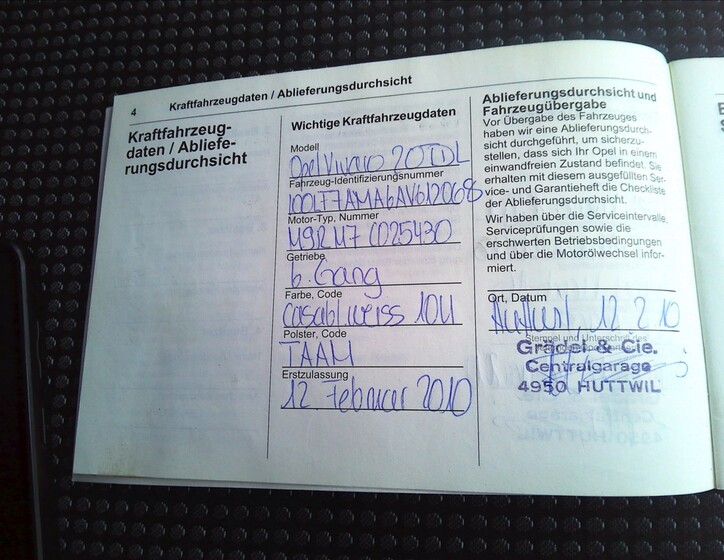 4 Kraftfahrzeugdaten / Ablieferungsdurchsicht
Kraftfahrzeug-
daten / Abliefe-
rungsdurchsicht
Wichtige Kraftfahrzeugdaten
Modell
Opel Vivaro 20TDL
Fahrzeug-Identifizierungsnummer
Motor-Typ, Nummer
M9RM7 C025430
Getriebe
6. Gang
Farbe, Code
Casabl weiss 10U
Polster, Code
TAAM
Erstzulassung
12. Februar 2010
Ablieferungsdurchsicht und
Fahrzeugübergabe
Vor Übergabe des Fahrzeuges
haben wir eine Ablieferungsdurch-
sicht durchgeführt, um sicherzu-
stellen, dass sich Ihr Opel in einem
einwandfreien Zustand befindet. Sie
erhalten mit diesem ausgefüllten Ser-
vice- und Garantieheft die Checkliste
der Ablieferungsdurchsicht.
Wir haben über die Serviceintervalle,
Serviceprüfungen sowie die
erschwerten Betriebsbedingungen
und über die Motorölwechsel infor-
miert.
Ort, Datum
Huttwil, 12.2.10
Stempel und Unterschrift des
Grädel & Cie.
Centralgarage
4950 HUTTWIL